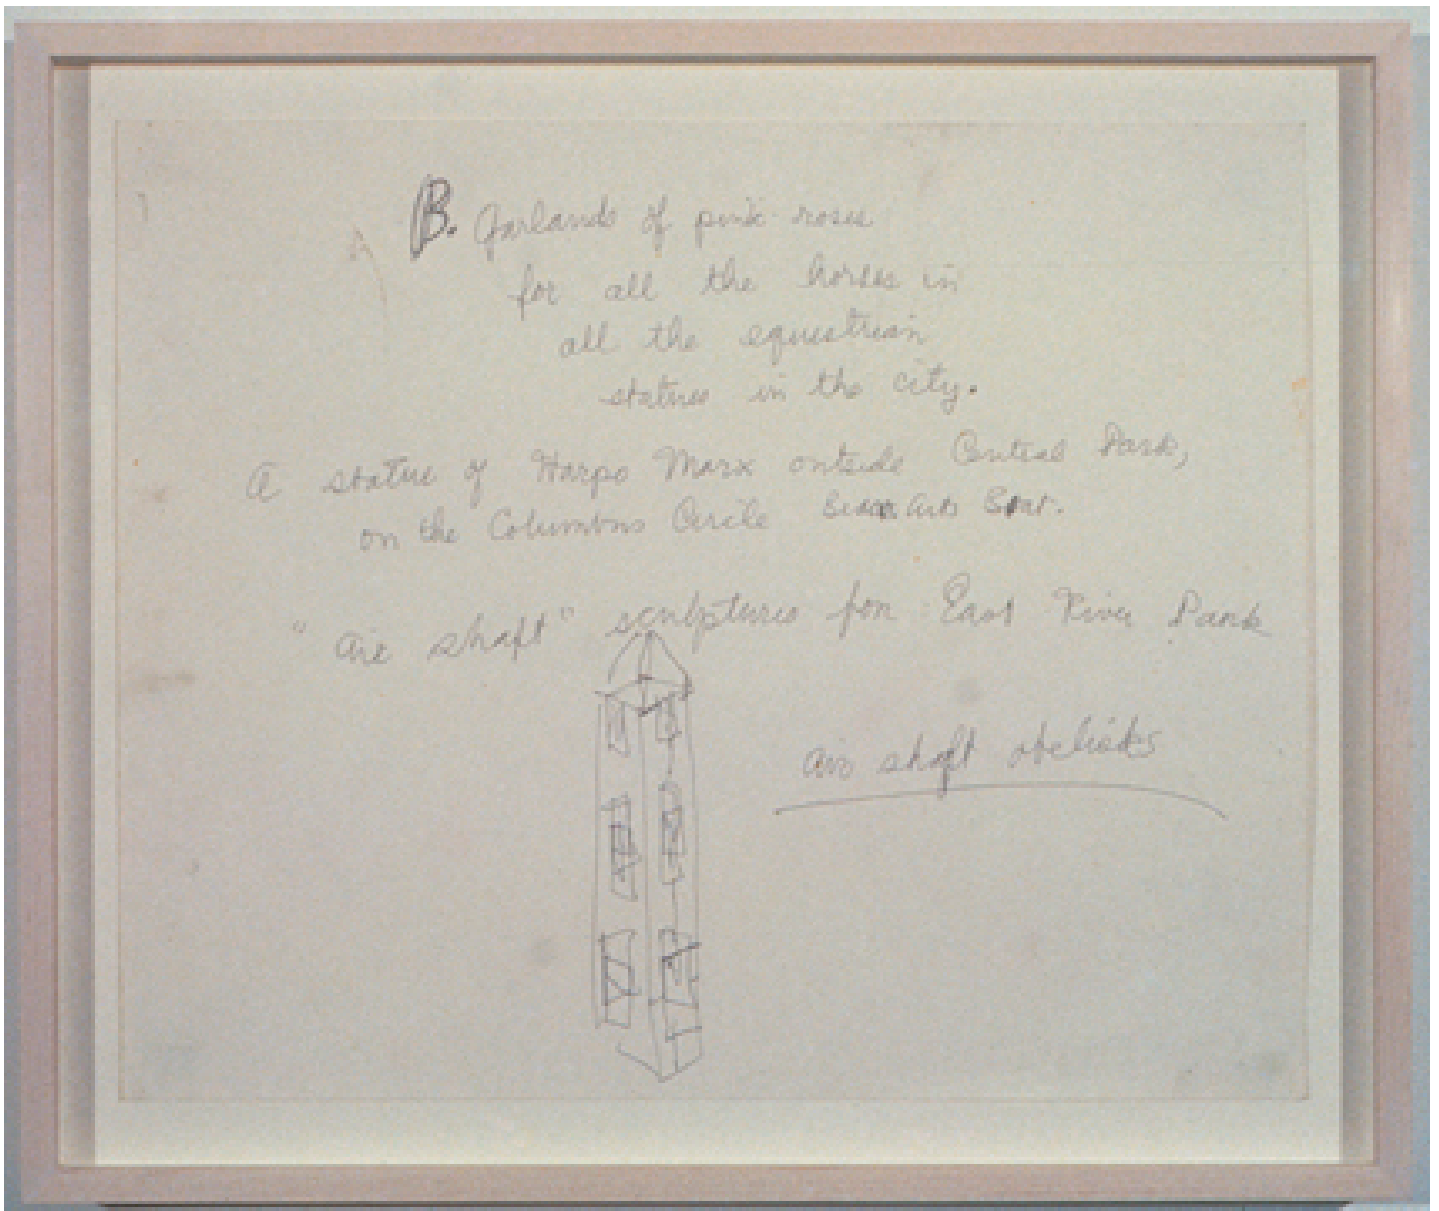 B. Garlands of pink roses
for all the horses in
all the equestrian
statues in the city.
A statue of Harpo Marx outside Central Park,
on the Columbus Circle Beaux Arts Boat.
"air shaft" sculptures for East River Park
air shaft obelisks